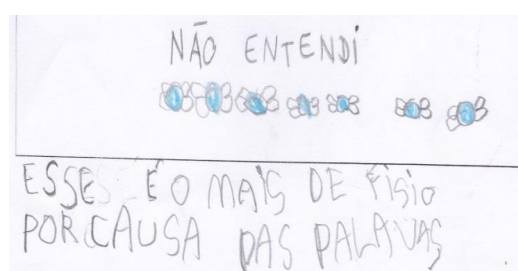 NÃO ENTENDI
ESSE É O MAIS DE FISIO
POR CAUSA DAS PALAVAS